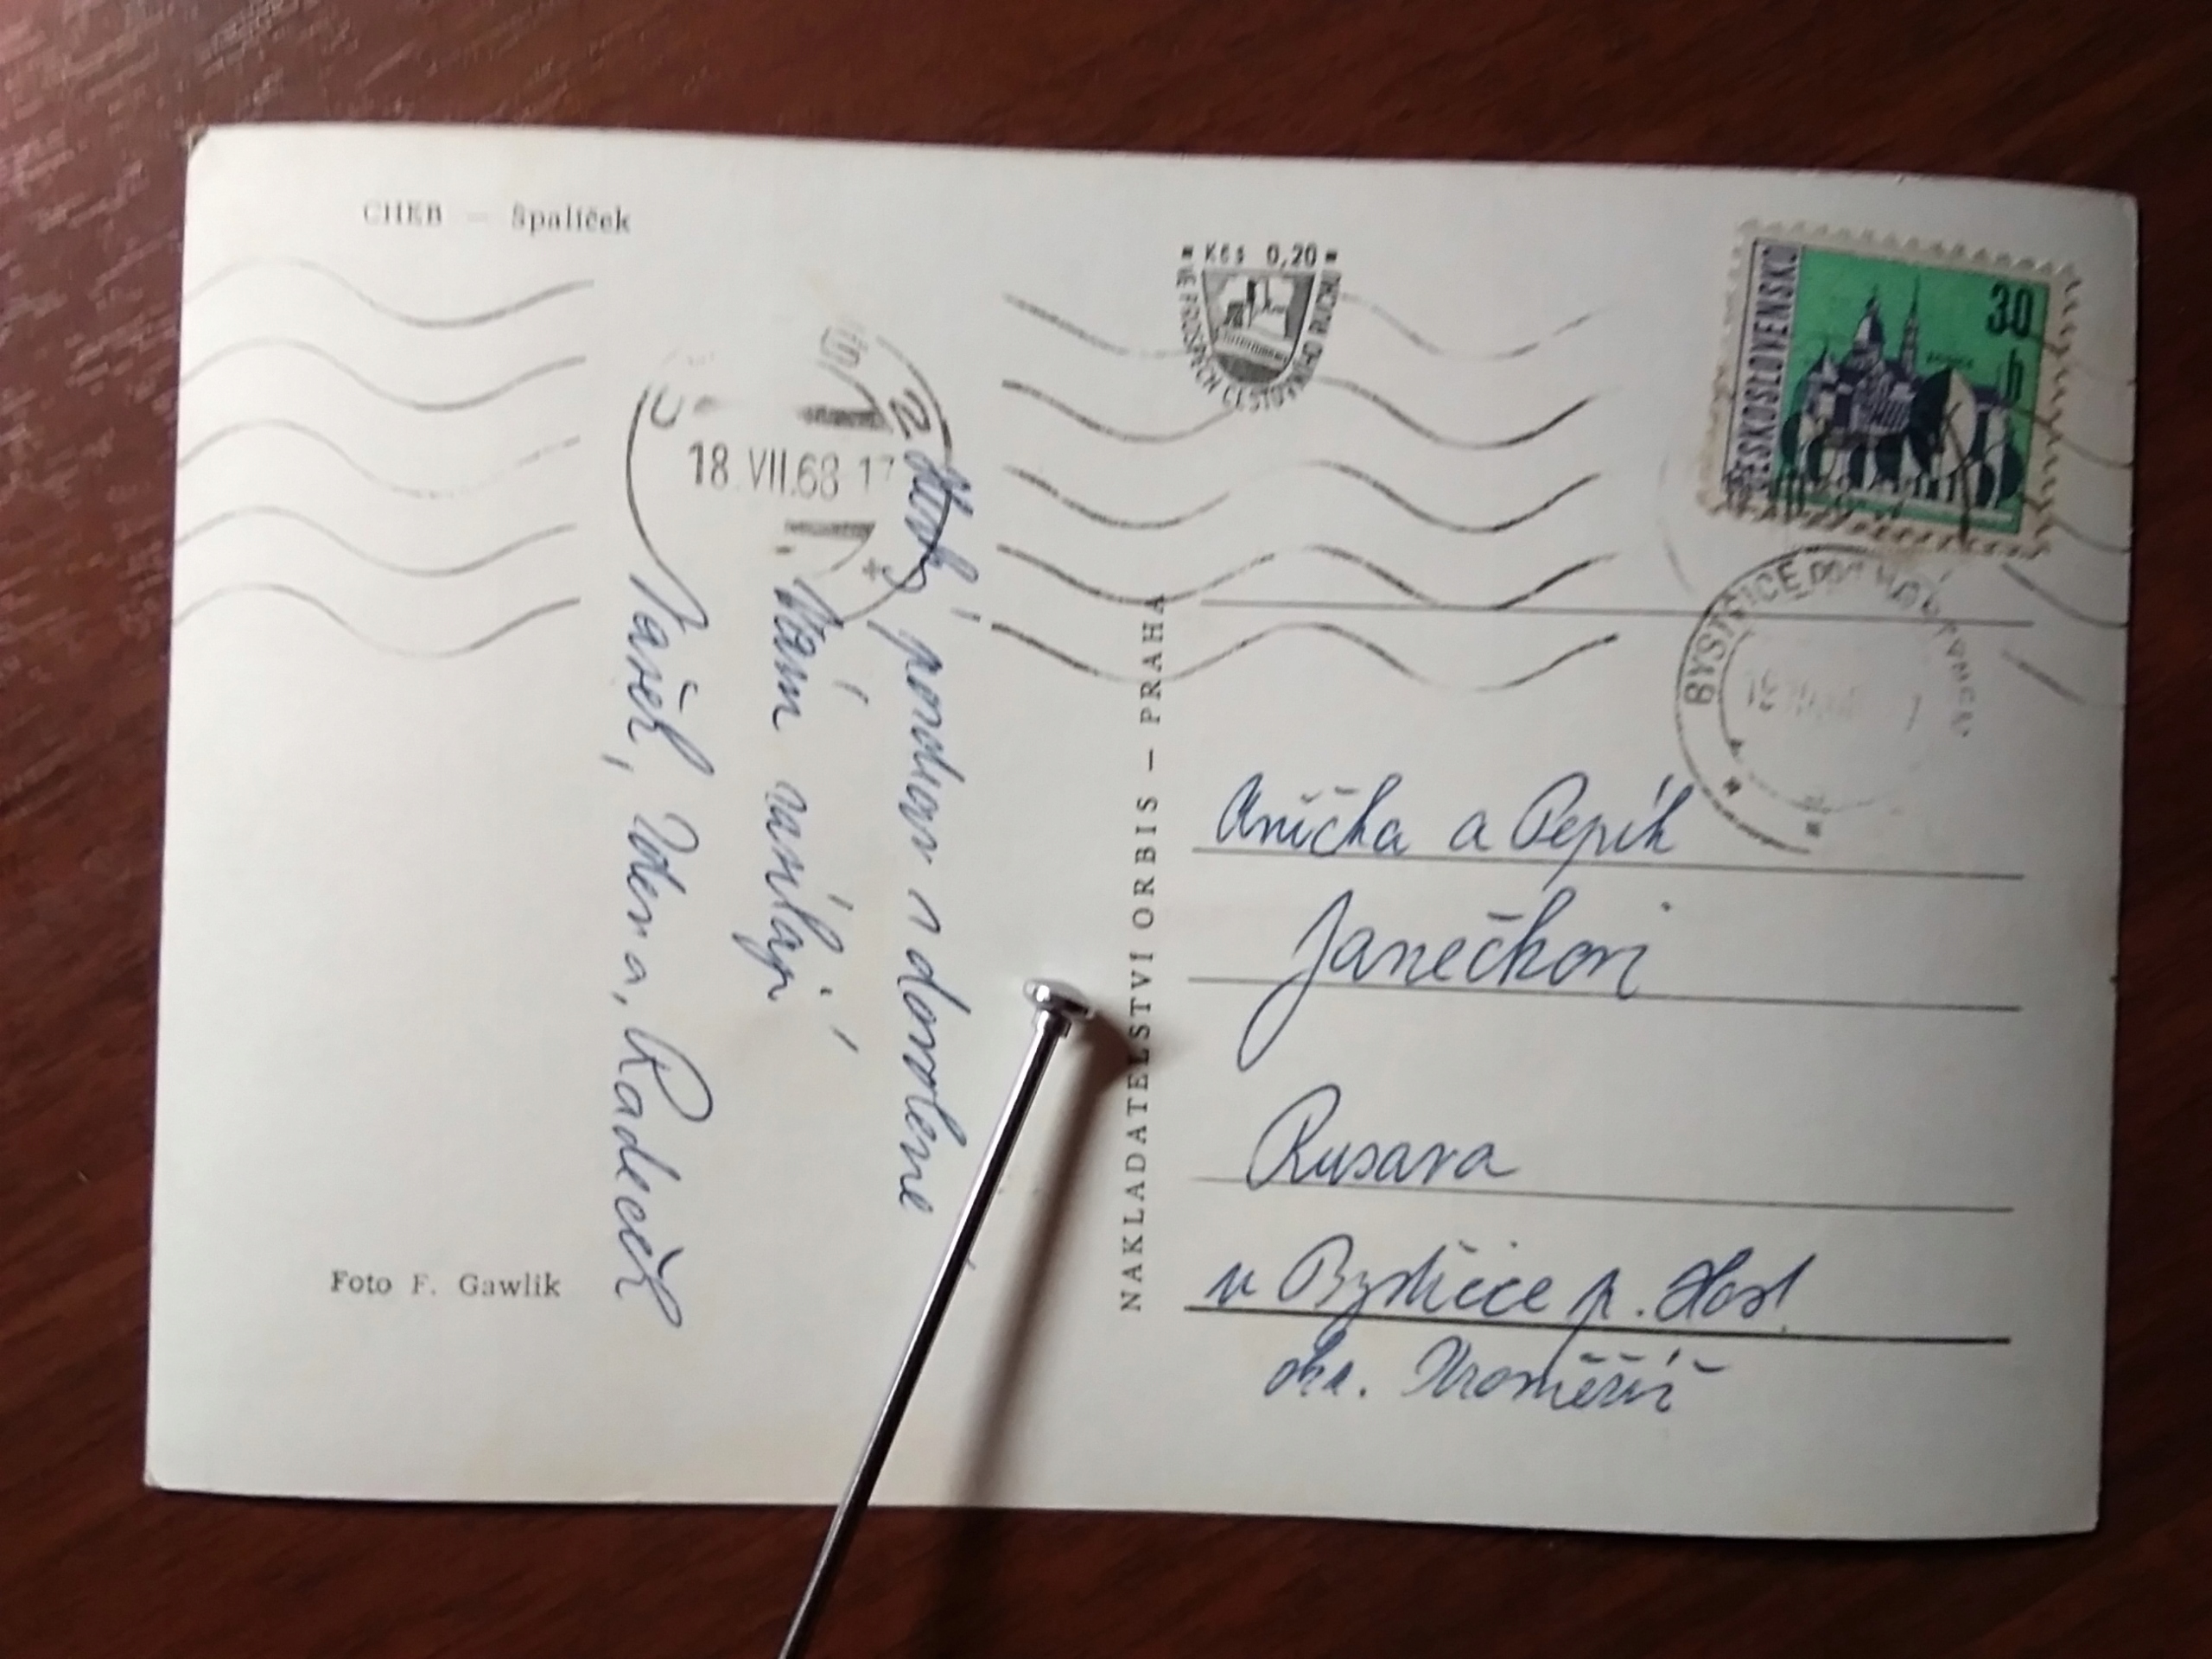 CHEB — Špalíček
* Kčs 0,20 *
VE PROSPĚCH CESTOVNÍHO RUCHU
ČESKOSLOVENSKO
30 h
2
18.VII.68 17
BYSTŘICE POD HOSTÝNEM
Mnoho pozdrav z dovolené
Vám zasílají
Vašek, Zdena, Radeček
NAKLADATELSTVÍ ORBIS — PRAHA
Anička a Pepík
Janečkovi
Rusava
u Bystřice p. Host.
okr. Kroměříž
Foto F. Gawlik